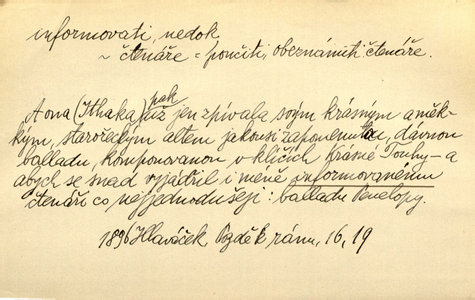 informovati, nedok
~ čtenáře = poučiti, obeznámiti čtenáře.
"A ona (Ithaka) už pak jen zpívala svým krásným a měk-
kým, starořeckým altem jakousi zapomenutou, dávnou
balladu, komponovanou v klíčích Krásné Touhy – a
abych se snad vyjádřil i méně informovanému
čtenáři co nejjednodušeji: balladu Penelopy.
1896 Hlaváček, Pozdě k ránu, 16, 19